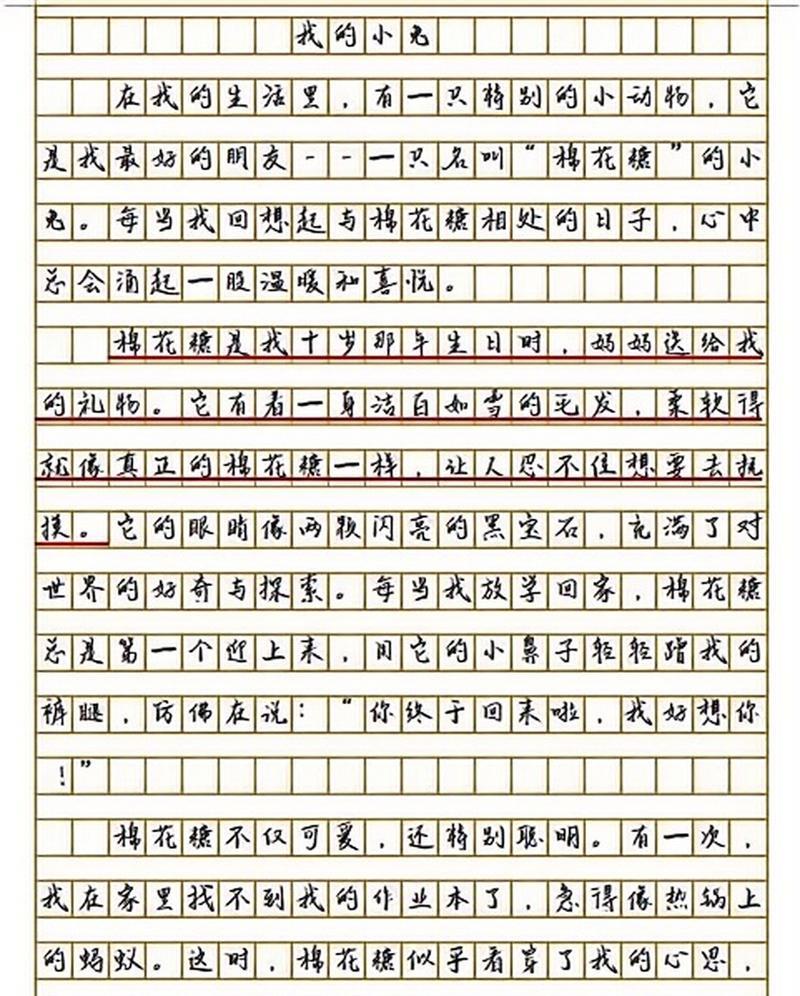 我的小兔
在我的生活里，有一只特别的小动物，它
是我最好的朋友--一只名叫“棉花糖”的小
兔。每当我回想起与棉花糖相处的日子，心中
总会涌起一股温暖和喜悦。
棉花糖是我十岁那年生日时，妈妈送给我
的礼物。它有着一身洁白如雪的毛发，柔软得
就像真正的棉花糖一样，让人忍不住想要去抚
摸。它的眼睛像两颗闪亮的黑宝石，充满了对
世界的好奇与探索。每当我放学回家，棉花糖
总是第一个迎上来，用它的小鼻子轻轻蹭我的
裤腿，仿佛在说：“你终于回来啦，我好想你
！”
棉花糖不仅可爱，还特别聪明。有一次，
我在家里找不到我的作业本了，急得像热锅上
的蚂蚁。这时，棉花糖似乎看穿了我的心思，